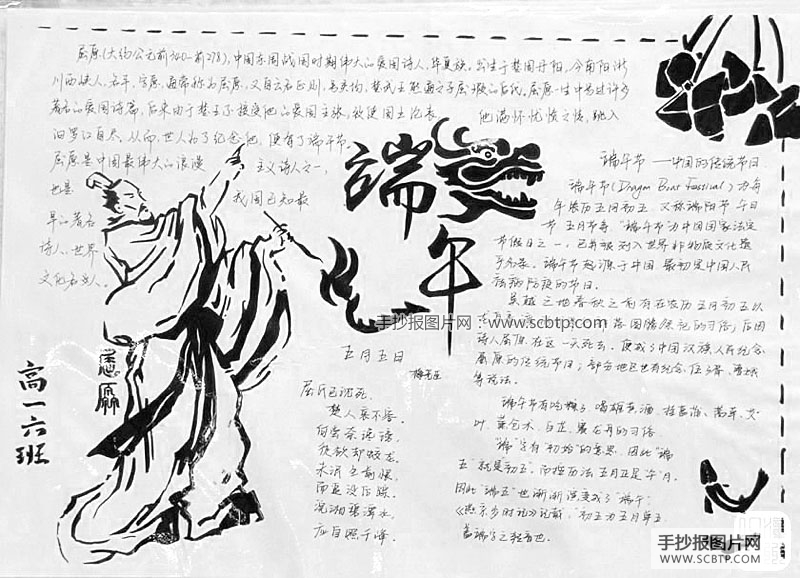 屈原(大约公元前340-前278),中国东周战国时期伟大的爱国诗人,华夏族。出生于楚国丹阳,今南阳淅
川西峡人,名平,字原,通常称为屈原,又自云名正则,号灵均,楚武王熊通之子屈瑕的后代。屈原一生中写过许多
著名的爱国诗篇,后来由于楚王不接受他的爱国主张,致使国土沦丧,
他满怀忧愤之情,跳入
汨罗江自尽,从而,世人为了纪念他,便有了端午节。
屈原是中国最伟大的浪漫
主义诗人之一,
也是
我国已知最
早的著名
诗人,世界
文化名人。
端午
端午节——中国的传统节日
端午节(Dragon Boat Festival)为每
年农历五月初五,又称端阳节、午日
节、五月节等。"端午节"为中国国家法定
节假日之一,已并被列入世界非物质文化遗
产名录。端午节起源于中国,最初是中国人民
祛病防疫的节日。
吴越之地春秋之前有在农历五月初五以
部落图腾祭祀的习俗;后因
诗人屈原在这一天死去,便成了中国汉族人民纪念
屈原的传统节日;部分地区也有纪念伍子胥、曹娥
等说法。
端午节有吃粽子,喝雄黄酒,挂菖蒲、蒿草、艾
叶,薰苍术、白芷,赛龙舟的习俗。
"端"字有"初始"的意思,因此"端
五"就是初五。而按历法五月正是"午"月,
因此"端五"也渐渐演变成了"端午"。
《燕京岁时记》记载:"初五为五月单五,
盖端字之转音也.
五月五日
-梅尧臣
屈氏已沈死,
楚人哀不容。
何尝奈谗谤,
徒欲却蛟龙。
未泯生前恨,
而追没后踪。
沅湘碧潭水,
应自照千峰。
高一六班
手抄报图片网:www.scbtp.com
手抄报图片网
www.scbtp.com